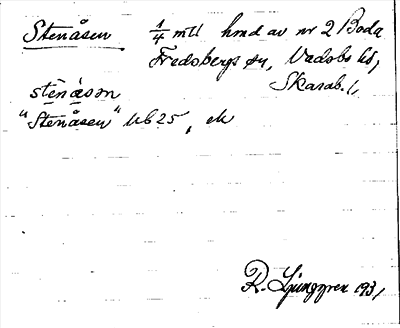 Stenåsen 1/4 mtl hmd av nr 2 Boda
Fredsbergs sn, Vadsbo hd,
Skarab. l,
stènåsⱺn
"Stenåsen" Ub 25, ek
R. Ljunggren 1931